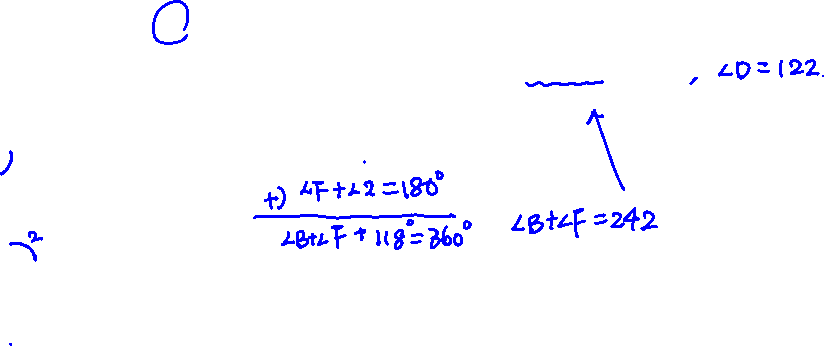 , ∠D=122.
+) ∠F+∠2=180°
∠B+∠F+118°=360°
∠B+∠F=242
2